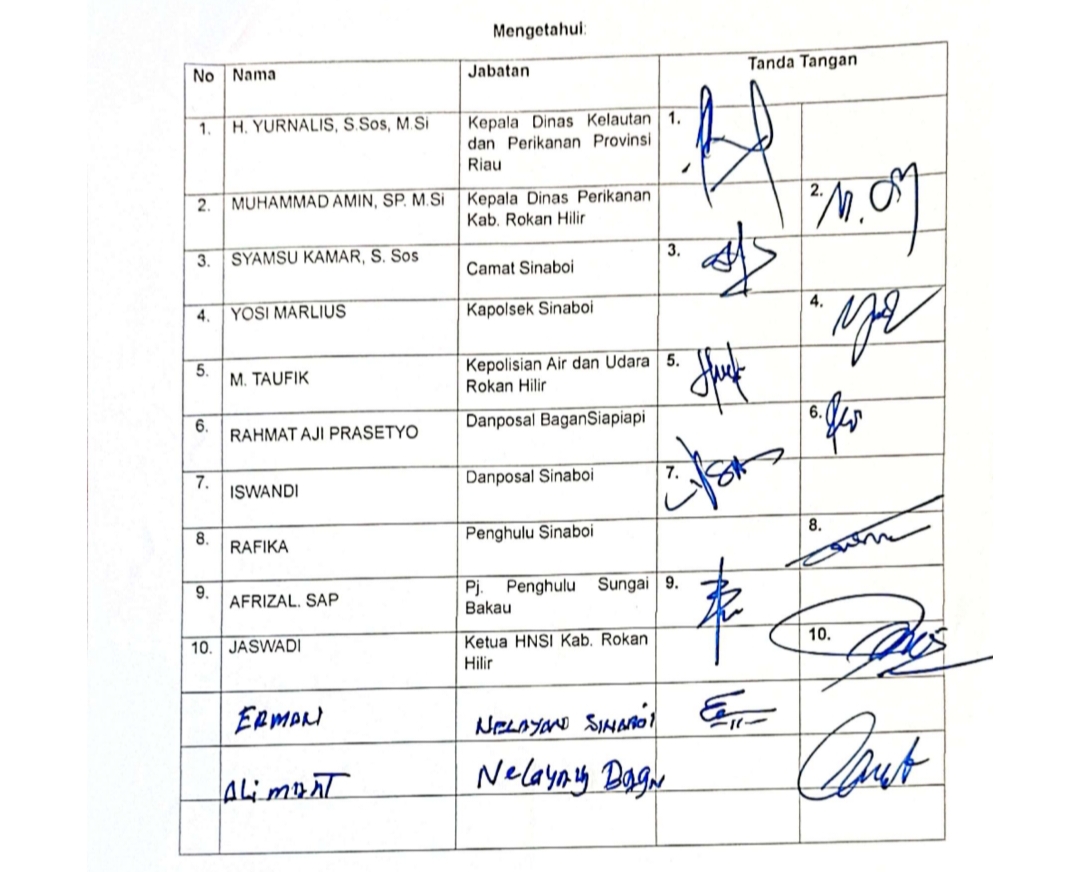 Mengetahui:
No Nama Jabatan Tanda Tangan
1. H. YURNALIS, S.Sos, M.Si Kepala Dinas Kelautan 1.
dan Perikanan Provinsi
Riau
2. MUHAMMAD AMIN, SP. M.Si Kepala Dinas Perikanan 2.
Kab. Rokan Hilir
3. SYAMSU KAMAR, S. Sos Camat Sinaboi 3.
4. YOSI MARLIUS Kapolsek Sinaboi 4.
5. M. TAUFIK Kepolisian Air dan Udara 5.
Rokan Hilir
6. RAHMAT AJI PRASETYO Danposal BaganSiapiapi 6.
7. ISWANDI Danposal Sinaboi 7.
8. RAFIKA Penghulu Sinaboi 8.
9. AFRIZAL. SAP Pj. Penghulu Sungai 9.
Bakau
10. JASWADI Ketua HNSI Kab. Rokan 10.
Hilir
ERMAN NELAYAN SINABOI
ALIMANT Nelayan